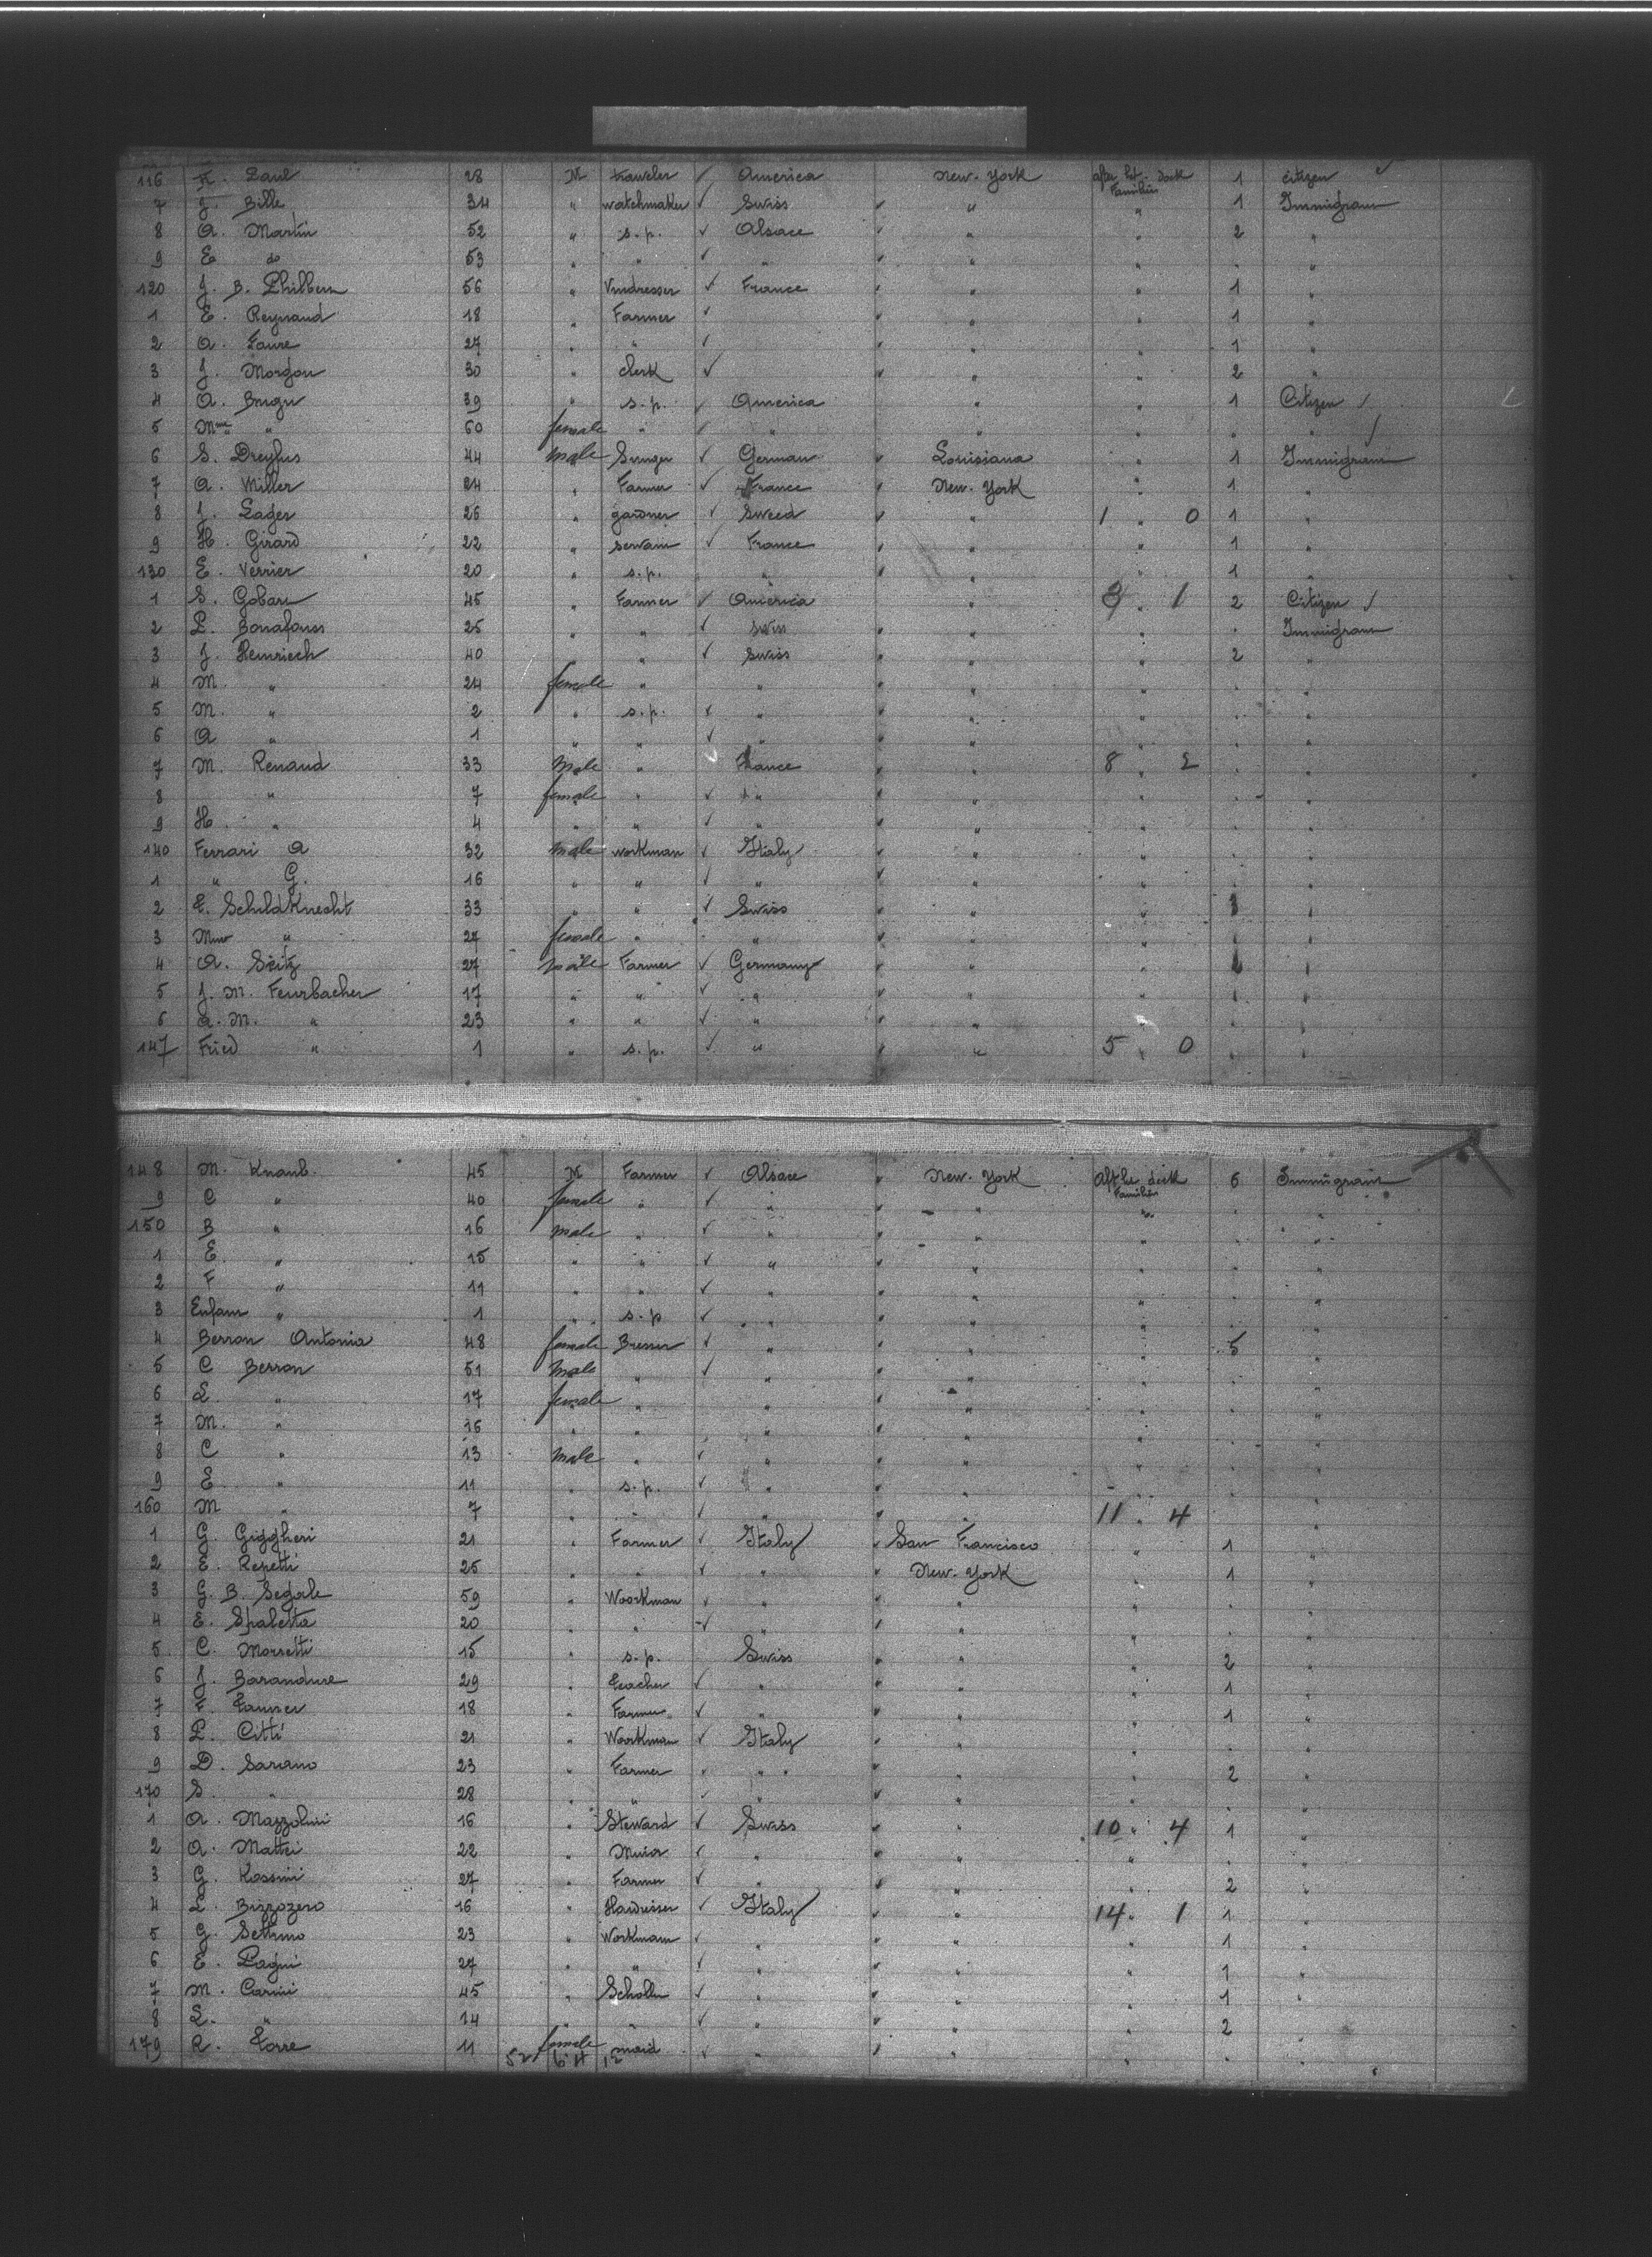 116 F. Paul 28 M traveler ✓ America New-York after bet. Deck Families 1 citizen ✓
7 J. Bille 34 " watchmaker ✓ Swiss " " 1 Immigram
8 A. Martin 52 " s.p. ✓ Alsace " " 2 "
9 E do 53 " " ✓ " " " " "
120 J. B. Philbem 56 " Vindresser ✓ France " " 1 "
1 E. Reynaud 18 " Farmer ✓ " " 1 "
2 A. Faure 27 " " ✓ " " 1 "
3 J. Morgon 30 " clerk ✓ " " 2 "
4 A. Brugu 39 " s.p. ✓ America " " 1 Citizen ✓
5 Mme " 60 female " ✓ " " " " " ✓
6 S. Dreyfus 44 male ✓ German Louisiana " 1 Immigram
7 A. Miller 24 " Farmer ✓ France New-York " 1 "
8 J. Lager 26 " gardner ✓ Sweed " 1 " 0 1 "
9 H. Girard 22 " servam ✓ France " " 1 "
130 E. Verrier 20 " s.p. " " " 1 "
1 S. Gobare 45 " Farmer ✓ America " 3 " 1 2 Citizen ✓
2 L. Bonafouss 25 " " ✓ swiss " " " Immigram
3 J. Henriech 40 " " ✓ Swiss " " 2 "
4 M. " 24 female " " " " " "
5 M. " 2 " s.p. ✓ " " " " "
6 A " 1 " " ✓ " " " " "
7 M. Renaud 33 Male " ✓ France " 8 " 2 " "
8 " 7 female " ✓ " " " " "
9 H. " 4 " " ✓ " " " " "
140 Ferrari A 32 male workman ✓ Italy " " " "
1 " G. 16 " " ✓ " " " " "
2 E. SchildKnecht 33 " " ✓ Swiss " " 1 "
3 Mme " 27 female " " " " "
4 A. Seitz 27 male Farmer ✓ Germany " " "
5 J. M. Feurbacher 17 " " ✓ " " " " "
6 A. M. " 23 " " ✓ " " " " "
147 Fried " 1 " s.p. ✓ " " 5 " 0 " "
148 M. Knaub. 45 M Farmer ✓ Alsace New-York Aft he deck Families 6 Immigrant
9 C " 40 female " ✓ " " " " "
150 B " 16 male " ✓ " " " " "
1 E. " 15 " " ✓ " " " " "
2 F " 11 " " ✓ " " " "
3 Enfam " 1 " s.p ✓ " " " " "
4 Berron Antonia 48 female Bresser ✓ " " " 5 "
5 C Berron 51 Male " ✓ " " " " "
6 L. " 17 female " " " " " "
7 M. " 16 " " " " " " "
8 C " 13 male " ✓ " " " " "
9 E " 11 " s.p. ✓ " " " " "
160 M " 7 " " ✓ " " 11 " 4 "
1 G. Giggheri 21 " Farmer ✓ Italy San Francisco " 1 "
2 E. Repetti 25 " " ✓ " New-York " 1 "
3 G. B. Segale 59 " Woorkman ✓ " " " " "
4 E. Spaletta 20 " " ✓ " " " " "
5 C. Morsetti 15 " s.p. Swiss " " 2 "
6 J. Barandure 29 " teacher ✓ " " " 1 "
7 F. Tanner 18 " Farmer ✓ " " " 1 "
8 L. Citti 21 " Woorkman ✓ Italy " " " "
9 D. Sarano 23 " Farmer " " " " 2 "
170 S. " 28 " " ✓ " " " " "
1 A. Mazzolini 16 " Steward ✓ Swiss " 10 " 4 1 "
2 A. Mattei 22 " ✓ " " " " "
3 G. Rossini 27 " Farmer ✓ " " " 2 "
4 L. Bizzozero 16 " ✓ Italy " 14 " 1 1 "
5 G. Settimo 23 " Workmam ✓ " " " 1 "
6 E. Pagni 27 " " ✓ " " " 1 "
7 M. Carini 45 " ✓ " " " 1 "
8 L. " 14 " " ✓ " " " 2 "
179 R. Torre 11 female maid ✓ " " " " "